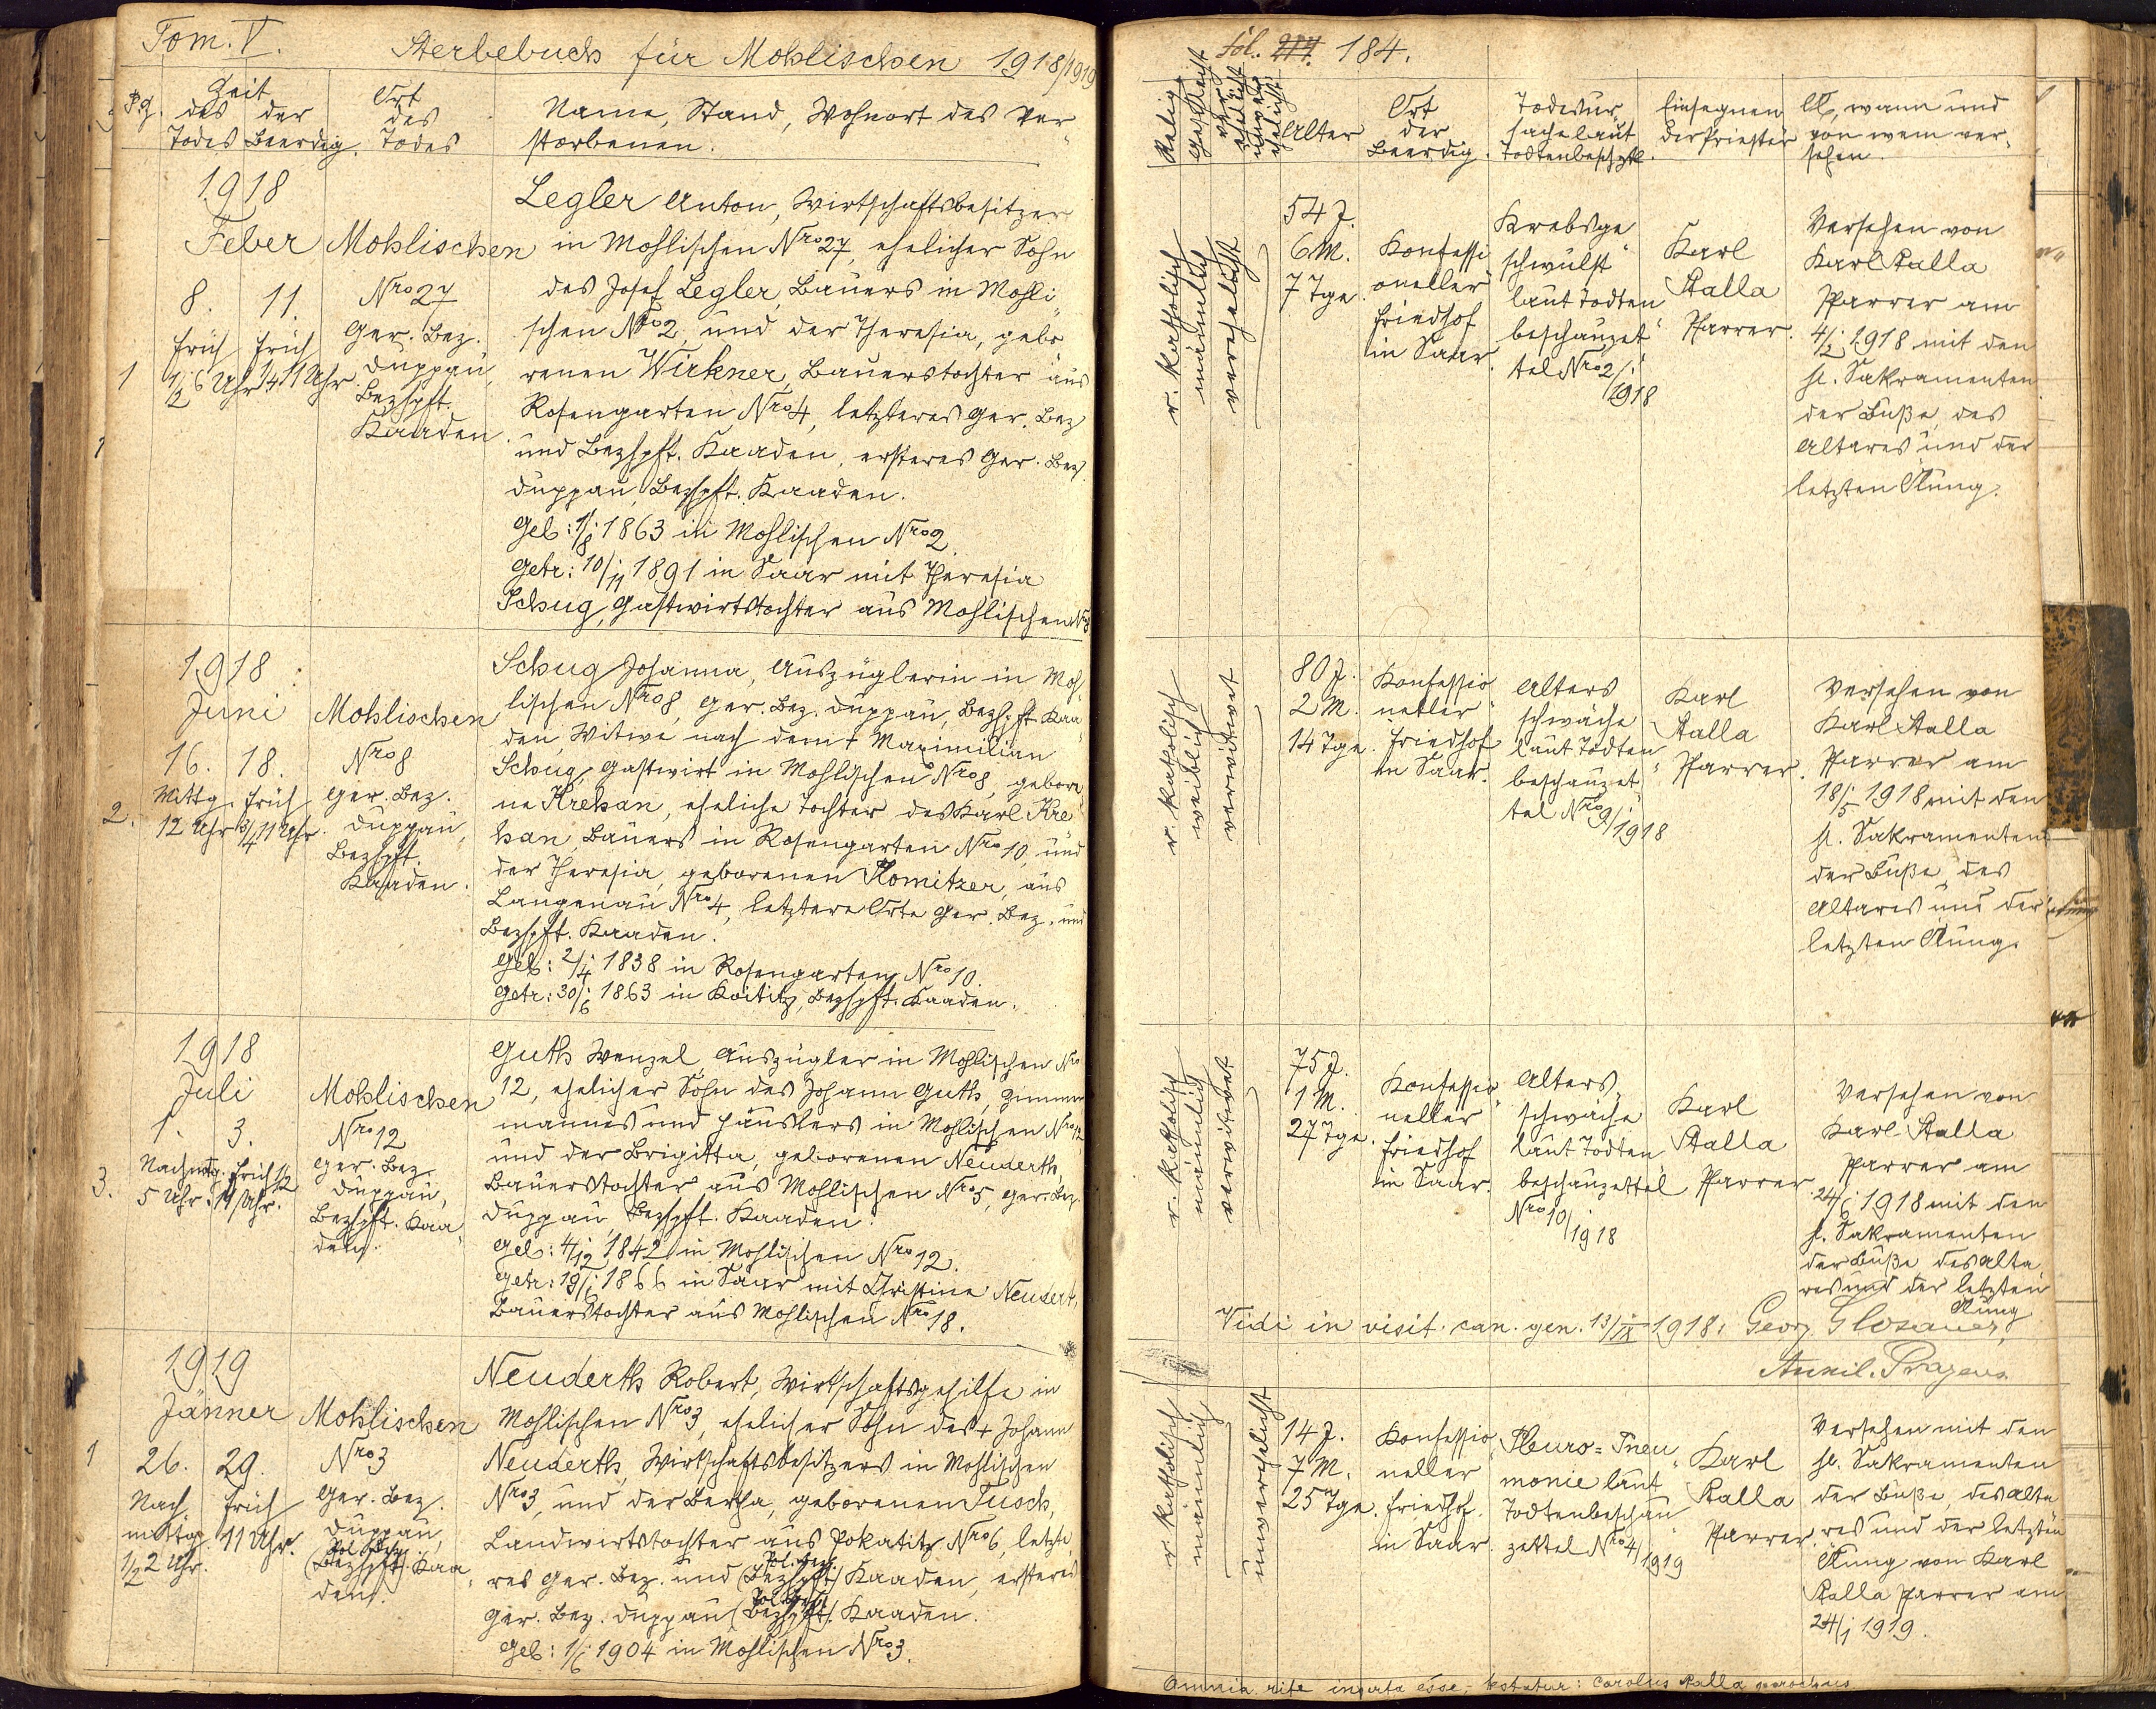 Tom. V.
Sterbebuch für Mohlischen 1918/1919
P.Z.
Zeit
des der
Todes Beerdig.
Ort
des
Todes
Name, Stand, Wohnort des Ver-
storbenen.
1918
Feber
8. 11.
früh früh
1/2 6 Uhr 1/4 11 Uhr
1
Mohlischen
Nro 27
Ger. Bez.
Duppau,
Bezhpft.
Kaaden.
Legler Anton, Wirtschaftsbesitzer
in Mohlischen Nro 27, ehelicher Sohn
des Josef Legler, Bauers in Mohli-
schen Nro 2, und der Theresia, gebo-
renen Wirkner, Bauerstochter aus
Rosengarten Nro 4, letzteres Ger. Bez
und Bezhpft. Kaaden, ersteres Ger. Bez.
Duppau, Bezhpft. Kaaden.
Geb: 1/8 1863 in Mohlischen Nro 2.
Getr: 10/11 1891 in Saar mit Theresia
Schug, Gastwirtstochter aus Mohlischen Nro 8
1918
Juni
16. 18.
Mittg. früh
12 Uhr 3/4 11 Uhr.
2.
Mohlischen
Nro 8
Ger. Bez.
Duppau,
Bezhpft.
Kaaden.
Schug Johanna, Auszüglerin in Moh-
lischen Nro 8, Ger. Bez. Duppau, Bezhpft. Kaa-
den, Witwe nach dem + Maximilian
Schug, Gastwirt in Mohlischen Nro 8, gebore-
ne Krehan, eheliche Tochter des Karl Kre-
han Bauers in Rosengarten Nro 10, und
der Theresia, geborenen Komitzer, aus
Langenau Nro 4, letztere Orte Ger. Bez. und
Bezhpft. Kaaden.
Geb: 2/4 1838 in Rosengarten Nro 10.
Getr: 30/6 1863 in Koititz, Bezhpft. Kaaden.
1918
Juli
1. 3.
Nachmttg. früh 1/2
5 Uhr. 11 Uhr.
3.
Mohlischen
Nro 12
Ger. Bez.
Duppau,
Bezhpft. Kaa-
den.
Guth Wenzel, Auszügler in Mohlischen Nro
12, ehelicher Sohn des Johann Guth, Zimmer-
mannes und Häuslers in Mohlischen Nro 12
und der Brigitta, geborenen Neuderth,
Bauerstochter aus Mohlischen Nro 5, Ger. Bez.
Duppau, Bezhpft. Kaaden.
Geb: 4/12 1842 in Mohlischen Nro 12.
Getr: 19/6 1866 in Saar mit Christine Neudert,
Bauerstochter aus Mohlischen Nro 18.
1919
Jänner
26. 29.
Nach früh
mittg. 11 Uhr.
1/2 2 Uhr.
1
Mohlischen
Nro 3
Ger. Bez.
Duppau,
Pol. Bez.
(Bezhpft) Kaa-
den.
Neuderth Robert, Wirtschaftsgehilfe in
Mohlischen Nro 3, ehelicher Sohn des + Johann
Neuderth, Wirtschaftsbesitzers in Mohlischen
Nro 3, und der Bertha, geborenen Tusch,
Landwirtstochter aus Pokatitz Nro 6, letzte-
res Ger. Bez. und (Bezhpft) Pol. Bez. Kaaden, ersteres
Ger. Bez. Duppau (Bezhpft) Pol. Bez. Kaaden.
Geb: 1/6 1904 in Mohlischen Nro 3.
fol. 184.
Relig.
Geschlecht
Alter
Ort
der
Beerdig.
Todesur-
sache laut
Todtenbeschztl.
Einsegnen-
der Priester
Ob, wann und
von wem ver-
sehen.
r. katholisch
männlich
verehelicht
54 J.
6 M.
7 Tge.
Konfessi-
oneller
Friedhof
in Saar.
Krebsge-
schwulst
laut Todten-
beschauzet-
tel Nro 2/
1918
Karl
Stalla
Pfarrer.
Versehen von
Karl Stalla
Pfarrer am
4/2 1918 mit den
hl. Sakramenten
der Buße, des
Altares und der
letzten Ölung.
r. katholisch
weiblich
verwitwet
80 J.
2 M.
14 Tge.
Konfessio-
neller
Friedhof
in Saar.
Alters-
schwäche
laut Todten-
beschauzet-
tel Nro 9/1918
Karl
Stalla
Pfarrer.
Versehen von
Karl Stalla
Pfarrer am
18/5 1918 mit den
hl. Sakramenten
der Buße, des
Altares und der
letzten Ölung.
r. katholisch
männlich
verwitwet
75 J.
1 M.
27 Tge.
Konfessio-
neller
Friedhof
in Saar.
Alters-
schwäche
laut Todten-
beschauzettel
Nro 10/1918
Karl
Stalla
Pfarrer
Versehen von
Karl Stalla
Pfarrer am
24/6 1918 mit den
hl. Sakramenten
der Buße, des Alta-
res und der letzten
Ölung
Vidi in visit. can. gen. 13/IX 1918. Georg Glosauer,
r. katholisch
männlich
unverehelicht
14 J.
7 M.
25 Tge.
Konfessio-
neller
Friedhof
in Saar.
Pleuro-Pneu-
monie laut
Todtenbeschau-
zettel Nro 4/1919
Karl
Stalla
Pfarrer.
Versehen mit den
hl. Sakramenten
der Buße, des Alta-
res und der letzten
Ölung von Karl
Stalla Pfarrer am
24/1 1919.
Omnia rite inserta esse, testatur: Carolus Stalla parochus